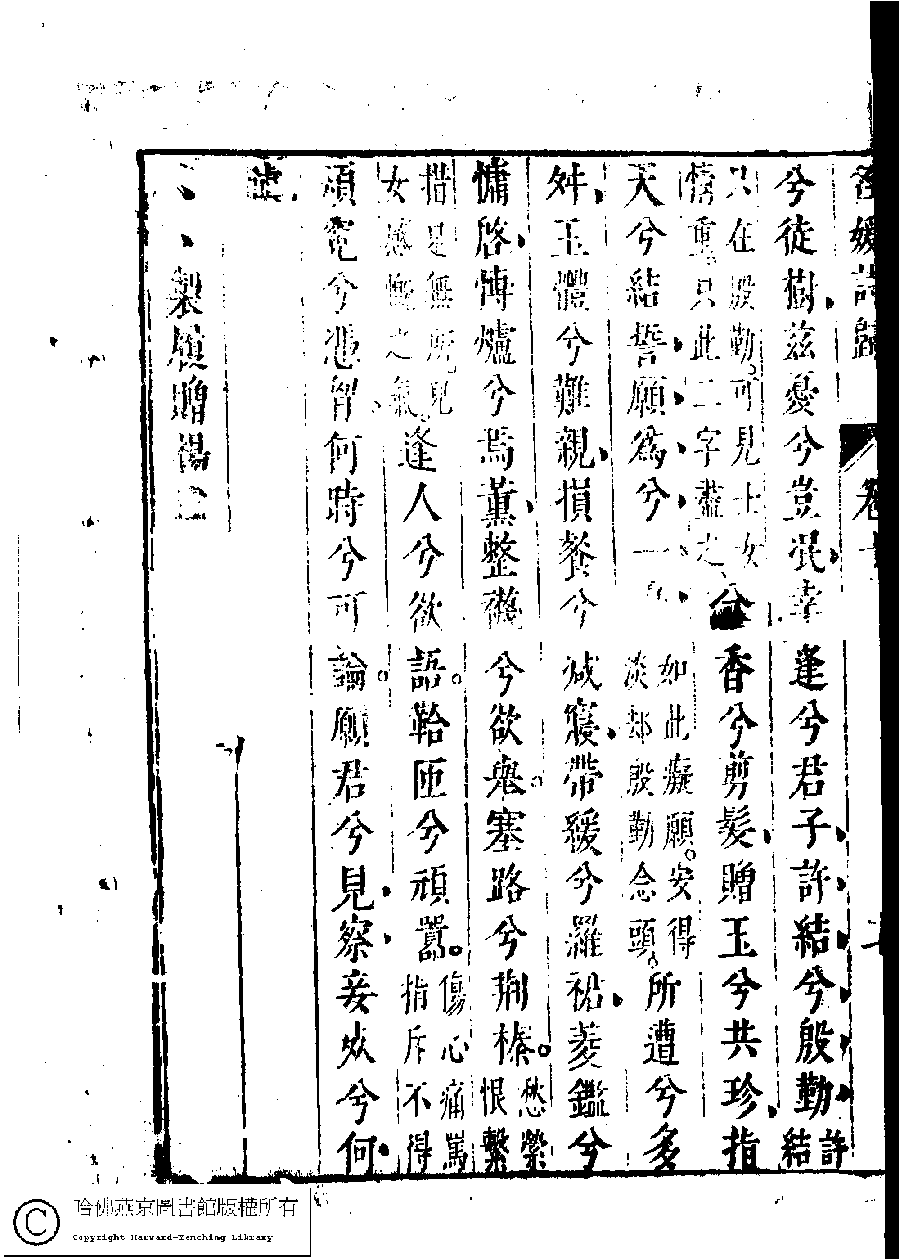 名媛詩歸
兮徒樹茲憂兮豈泯幸逢兮君子許結兮殷勤許結
只在殷勤可見士女情重只此二字盡之分香兮剪髮贈玉兮共珍指
天兮結誓願為兮一身如此癡願安得淡却殷勤念頭所遭兮多
舛玉體兮難親損餐兮減寢帶緩兮羅裙菱鑑兮
慵啓博爐兮焉薰整襪兮欲舉塞路兮荊榛愁縈恨繫
措足無所見女感慨之氣逢人兮欲語鞈匝兮頑嚚傷心痛罵指斥不得
煩寃兮憑胷何時兮可論願君兮見察妾死兮何
製履贈楊
哈佛燕京圖書館版權所有
Copyright Harvard-Yenching Library